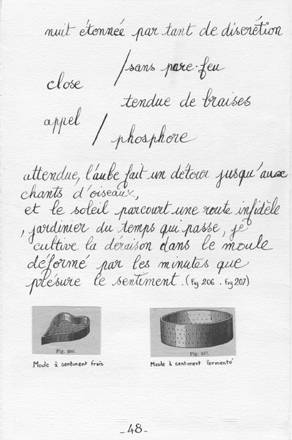 nuit étonnée par tant de discrétion
/sans pare-feu
close
tendue de braises
appel
/ phosphore
attendue, l'aube fait un détour jusqu'aux
chants d'oiseaux,
et le soleil parcourt une route infidèle
, jardinier du temps qui passe, je
cultive la déraison dans le moule
déformé par les minutes que
présure le sentiment. (Fig 206. Fig 207)
Fig. 206.
Fig. 207.
Moule à sentiment frais
Moule à sentiment fermenté
-48-